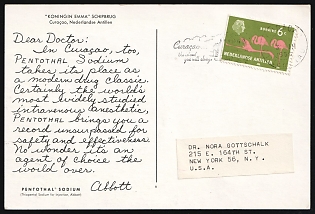 "KONINGIN EMMA" SCHIPBRUG
Curaçao, Nederlandse Antillen
Dear Doctor:
In Curaçao, too,
PENTOTHAL Sodium
takes its place as
a modern drug classic.
Certainly the world's
most widely studied
intravenous anesthetic,
PENTOTHAL brings you a
record unsurpassed for
safety and effectiveness.
No wonder it's an
agent of choice the
world over.
Abbott
PENTOTHAL® SODIUM
(Thiopental Sodium for Injection, Abbott)
Curaçao
6c
NEDERLANDSE ANTILLEN
DR. NORA GOTTSCHALK
215 E. 164TH ST.
NEW YORK 56, N.Y.
U.S.A.